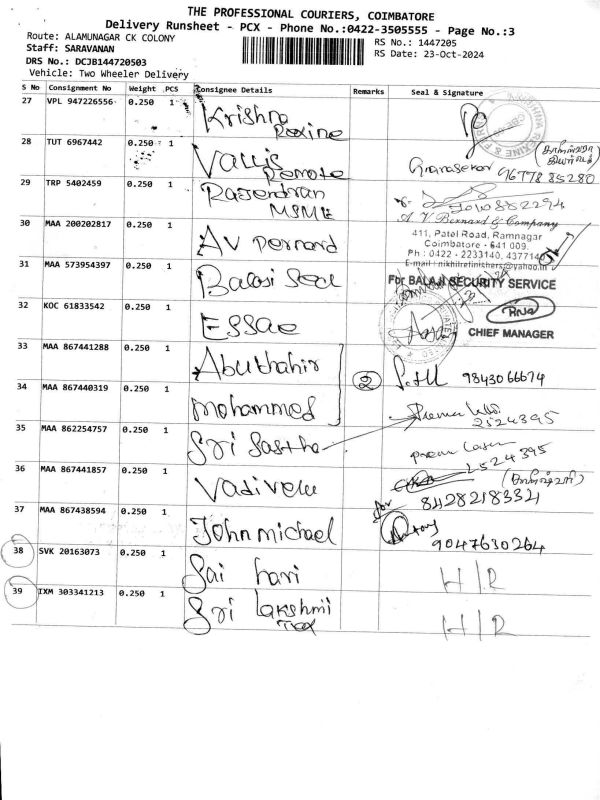 THE PROFESSIONAL COURIERS, COIMBATORE
Delivery Runsheet - PCX - Phone No.:0422-3505555 - Page No.:3
Route: ALAMUNAGAR CK COLONY
Staff: SARAVANAN
RS No.: 1447205
RS Date: 23-Oct-2024
DRS No.: DCJB144720503
Vehicle: Two Wheeler Delivery
S No Consignment No Weight .PCS Consignee Details Remarks Seal & Signature
27 VPL 947226556 0.250 1 Krishna Rexine
28 TUT 6967442 0.250 1 Vallis Remote
Gnanasekar 96778 85280
29 TRP 5402459 0.250 1 Rajendran MSME
30 MAA 200202817 0.250 1 AV Bernard
A. V. Bernard & Company
411, Patel Road, Ramnagar
Coimbatore - 641 009.
Ph : 0422 - 2233140, 4377140
E-mail : nikhilrefinishers@yahoo.in
31 MAA 573954397 0.250 1 Balaji Seca
For BALAJI SECURITY SERVICE
CHIEF MANAGER
32 KOC 61833542 0.250 1 ESSAE
33 MAA 867441288 0.250 1 Abuthahir
2 9843066674
34 MAA 867440319 0.250 1 Mohammed
2524395
35 MAA 862254757 0.250 1 Sri Sastha
2524395
36 MAA 867441857 0.250 1 Vadivelu
8428218334
37 MAA 867438594 0.250 1 John michael
9047630264
38 SVK 20163073 0.250 1 Sai hari H/R
39 IXM 303341213 0.250 1 Sri Lakshmi Tex H/R